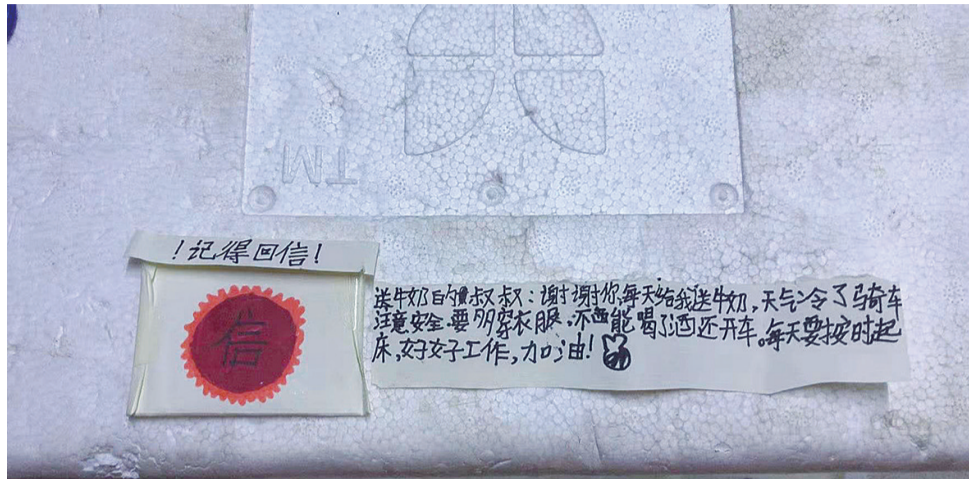 TM
！记得回信！
信
送牛奶的叔叔：谢谢你每天给我送牛奶，天气冷了骑车
注意安全，要多穿衣服，不能喝了酒还开车。每天要按时起
床，好好工作，加油！